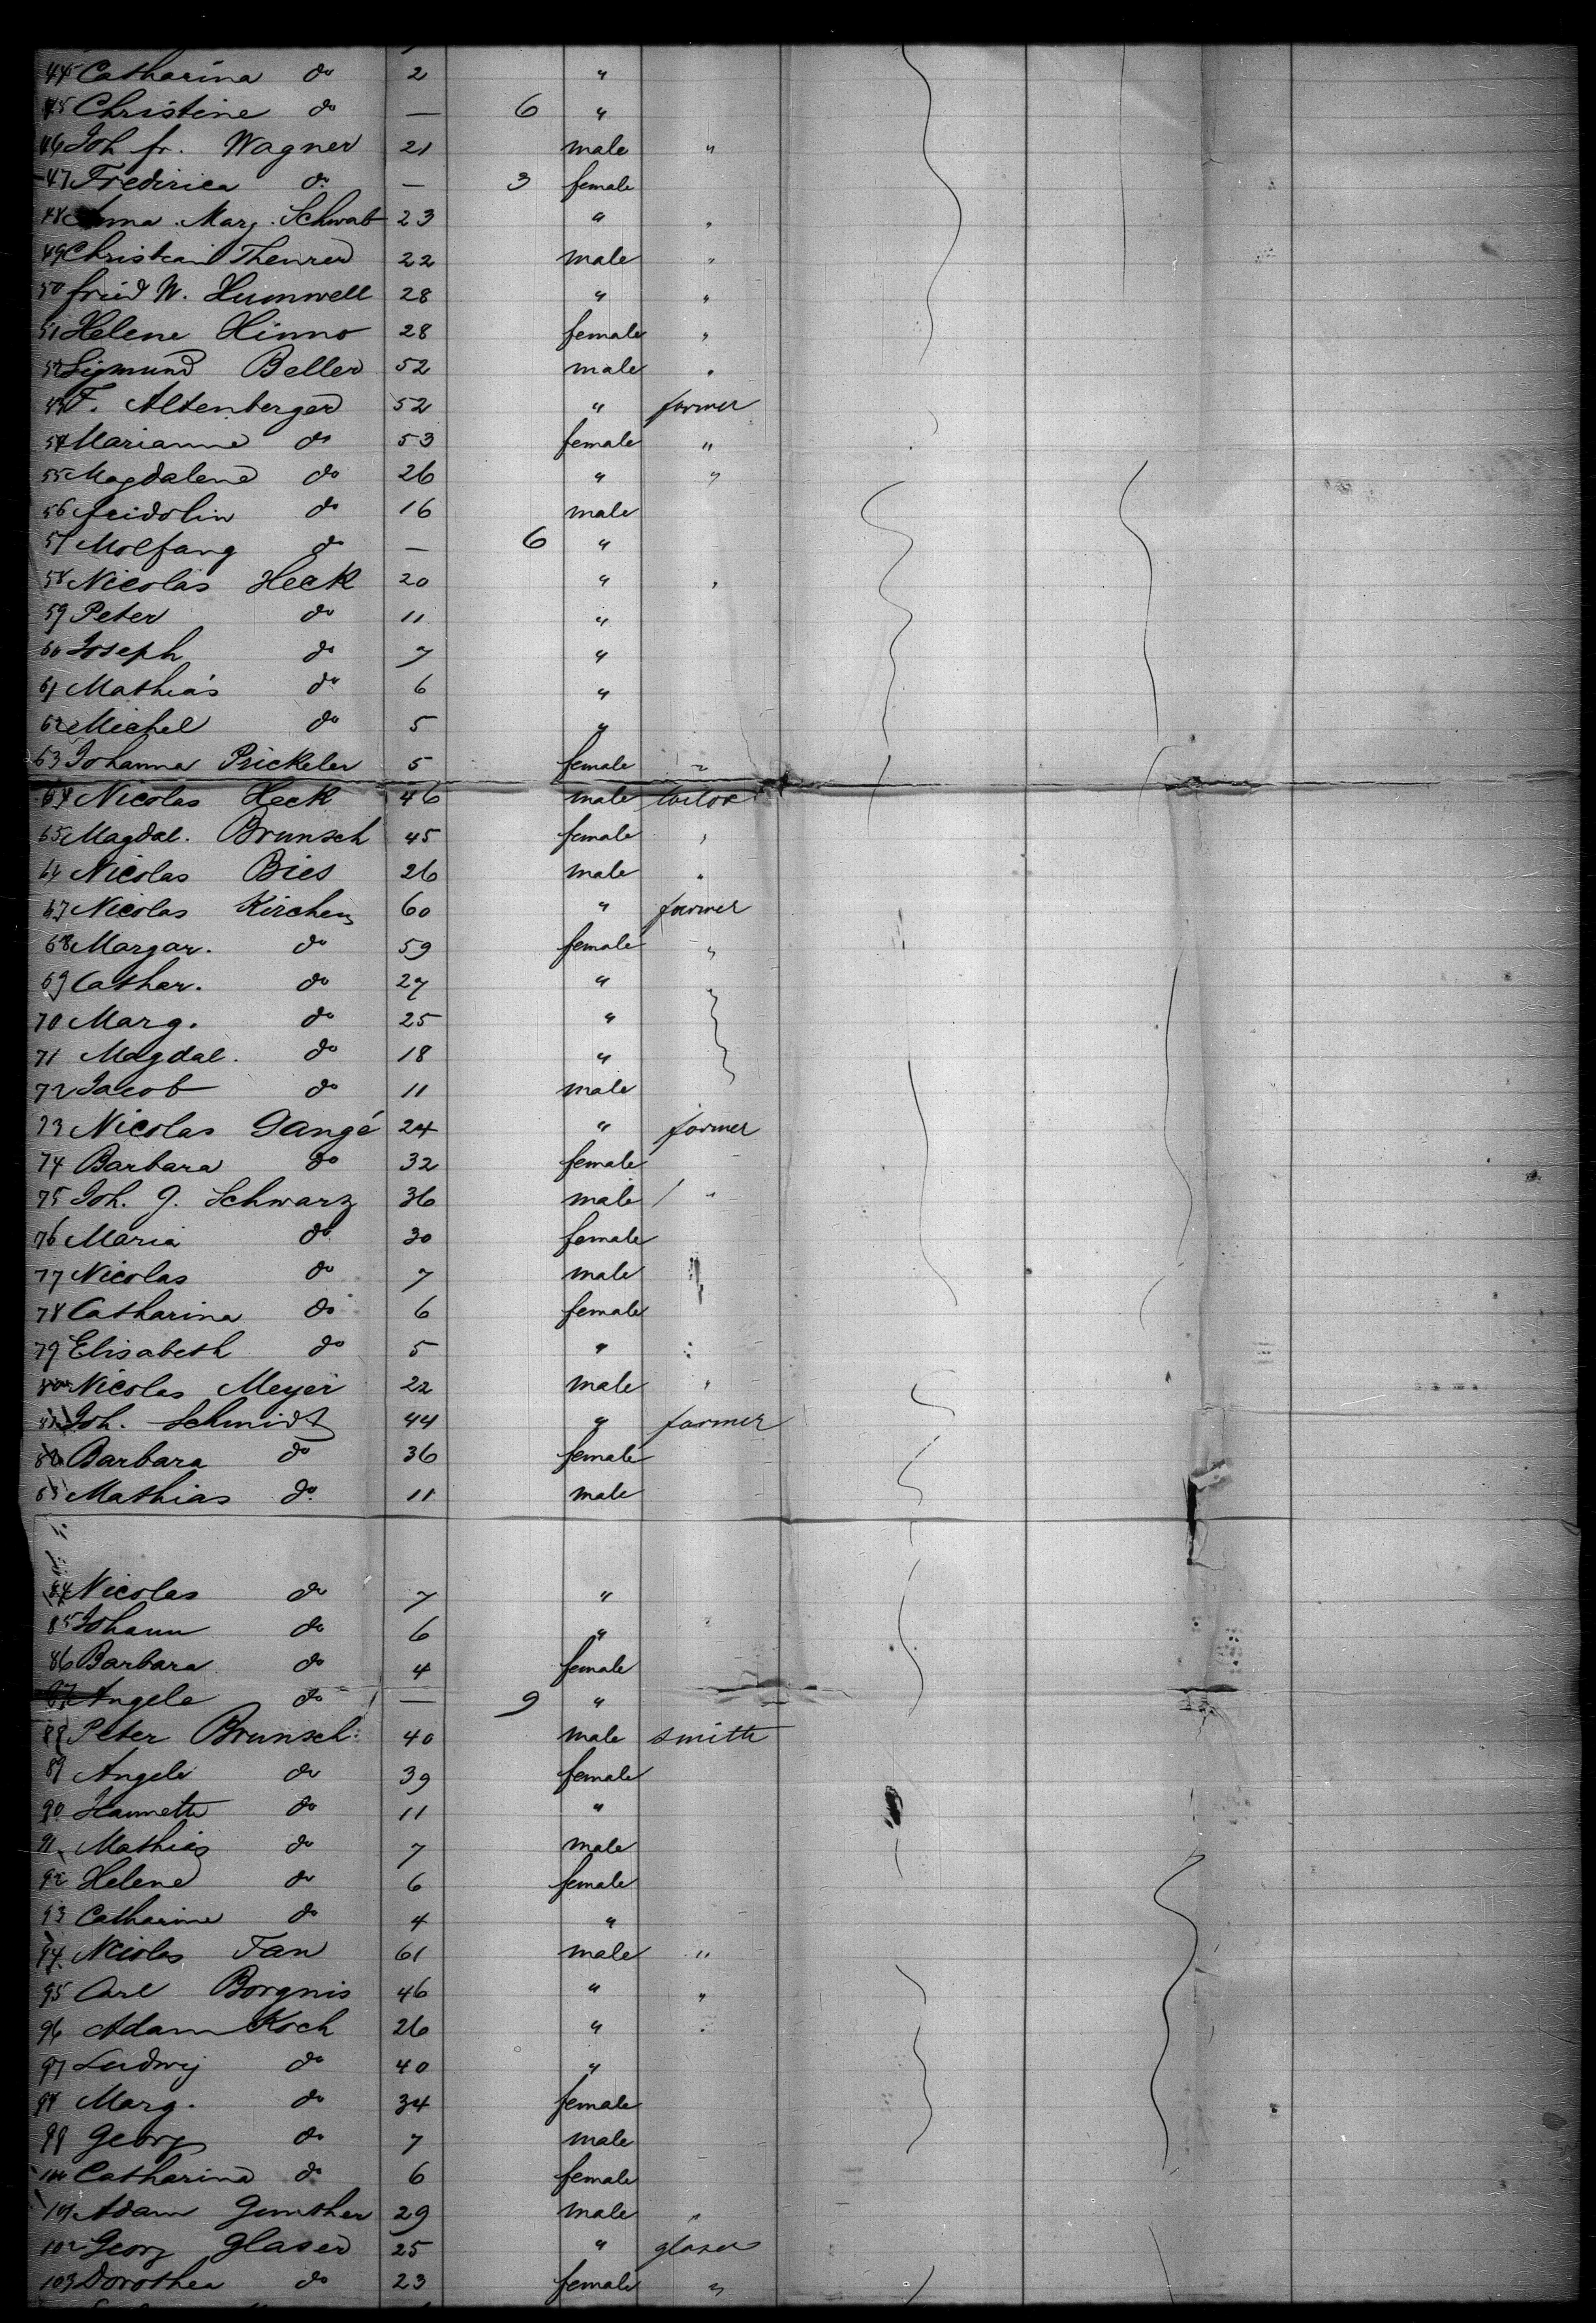 44 Catharina do 2 "
45 Christine do — 6 "
46 Joh fr. Wagner 21 male "
47 Frederica do — 3 female
48 Anna Marg. Schwab 23 " "
49 Christian Theurer 22 male "
50 fried W. Humwell 28 " "
51 Helene Hinno 28 female "
52 Sigmund Beller 52 male "
53 F. Altenberger 52 " farmer
54 Marianne do 53 female "
55 Magdalene do 26 " "
56 fridolin do 16 male
57 Wolfang do — 6 "
58 Nicolas Heck 20 " "
59 Peter do 11 "
60 Joseph do 7 "
61 Mathias do 6 "
62 Michel do 5 "
63 Johanna Prickeler 5 female "
64 Nicolas Heck 46 male tailor
65 Magdal. Brunsch 45 female "
66 Nicolas Bies 26 male "
67 Nicolas Kirchen 60 " farmer
68 Margar. do 59 female "
69 Cathar. do 27 " "
70 Marg. do 25 "
71 Magdal. do 18 "
72 Jacob do 11 male
73 Nicolas Gangé 24 " farmer
74 Barbara do 32 female
75 Joh. J. Schwarz 36 male "
76 Maria do 30 female
77 Nicolas do 7 male
78 Catharina do 6 female
79 Elisabeth do 5 "
80 Nicolas Meyer 22 male "
81 Joh. Schmidt 44 " farmer
82 Barbara do 36 female
83 Mathias do 11 male
84 Nicolas do 7 "
85 Johann do 6 "
86 Barbara do 4 female
87 Angele do — 9 "
88 Peter Brunsch 40 male smith
89 Angele do 39 female
90 Hannette do 11 "
91 Mathias do 7 male
92 Helene do 6 female
93 Catharine do 4 "
94 Nicolas Fan 61 male "
95 Carl Borgnis 46 " "
96 Adam Koch 26 " "
97 Ludwig do 40 "
98 Marg. do 34 female
99 Georg do 7 male
100 Catharina do 6 female
101 Adam Gunther 29 male "
102 Georg Glaser 25 " glaser
103 Dorothea do 23 female "